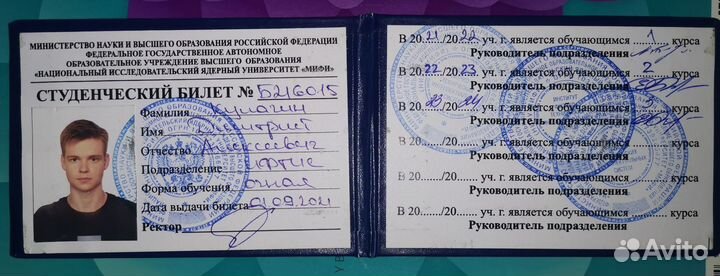 МИНИСТЕРСТВО НАУКИ И ВЫСШЕГО ОБРАЗОВАНИЯ РОССИЙСКОЙ ФЕДЕРАЦИИ
ФЕДЕРАЛЬНОЕ ГОСУДАРСТВЕННОЕ АВТОНОМНОЕ
ОБРАЗОВАТЕЛЬНОЕ УЧРЕЖДЕНИЕ ВЫСШЕГО ОБРАЗОВАНИЯ
«НАЦИОНАЛЬНЫЙ ИССЛЕДОВАТЕЛЬСКИЙ ЯДЕРНЫЙ УНИВЕРСИТЕТ «МИФИ»
СТУДЕНЧЕСКИЙ БИЛЕТ № Б216015
Фамилия
Имя Дмитрий
Отчество Алексеевич
Подразделение
Форма обучения очная
Дата выдачи билета 01.09.2021
Ректор
В 2021/2022 уч. г. является обучающимся 1 курса
Руководитель подразделения
В 2022/2023 уч. г. является обучающимся 2 курса
Руководитель подразделения
В 2023/20 уч. г. является обучающимся 3 курса
Руководитель подразделения
В 20......./20....... уч. г. является обучающимся ........ курса
Руководитель подразделения
В 20......./20....... уч. г. является обучающимся ........ курса
Руководитель подразделения
В 20......./20....... уч. г. является обучающимся ........ курса
Руководитель подразделения
Avito